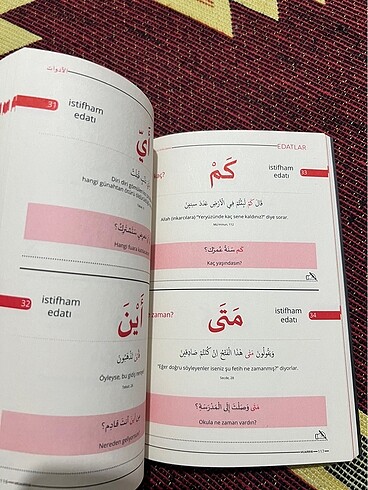 الأدوات
31
istifham
edatı
أَيّ
Diri diri gömülen
hangi günahtan ötürü
32
istifham
edatı
أَيْنَ
Öyleyse, bu gidiş
من أين أنت قادم؟
Nereden geliyorsun
EDATLAR
kaç?
كَمْ
istifham
edatı
33
قَالَ كَمْ لَبِثْتُمْ فِي الْأَرْضِ عَدَدَ سِنِينَ
Allah (inkarcılara) "Yeryüzünde kaç sene kaldınız?" diye sorar.
كَمْ سَنَةً عُمْرُكَ؟
Kaç yaşındasın?
zaman?
مَتَى
istifham
edatı
34
وَيَقُولُونَ مَتَى هَذَا الْفَتْحُ إِنْ كُنْتُمْ صَادِقِينَ
"Eğer doğru söyleyenler iseniz şu fetih ne zamanmış?" diyorlar.
Secde, 28
مَتَى وَصَلْتَ إِلَى الْمَدْرَسَةِ؟
Okula ne zaman vardın?